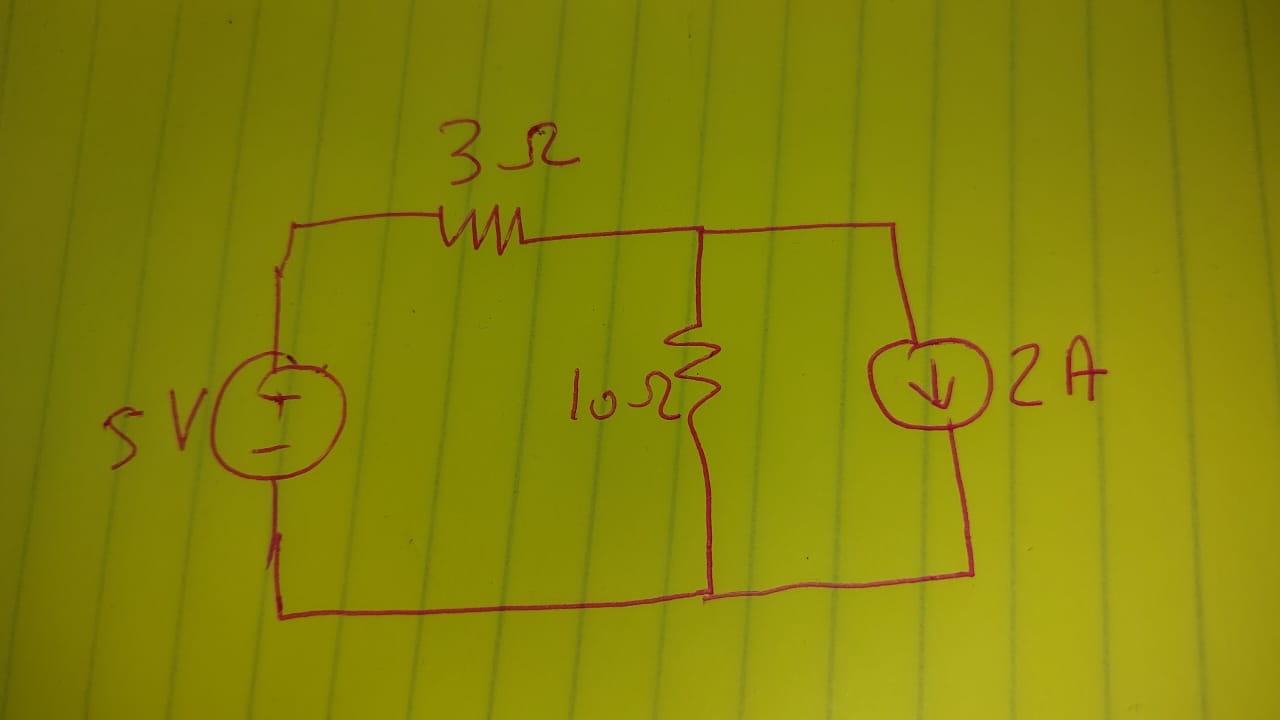 3 Ω
5 V
+
-
10 Ω
2 A